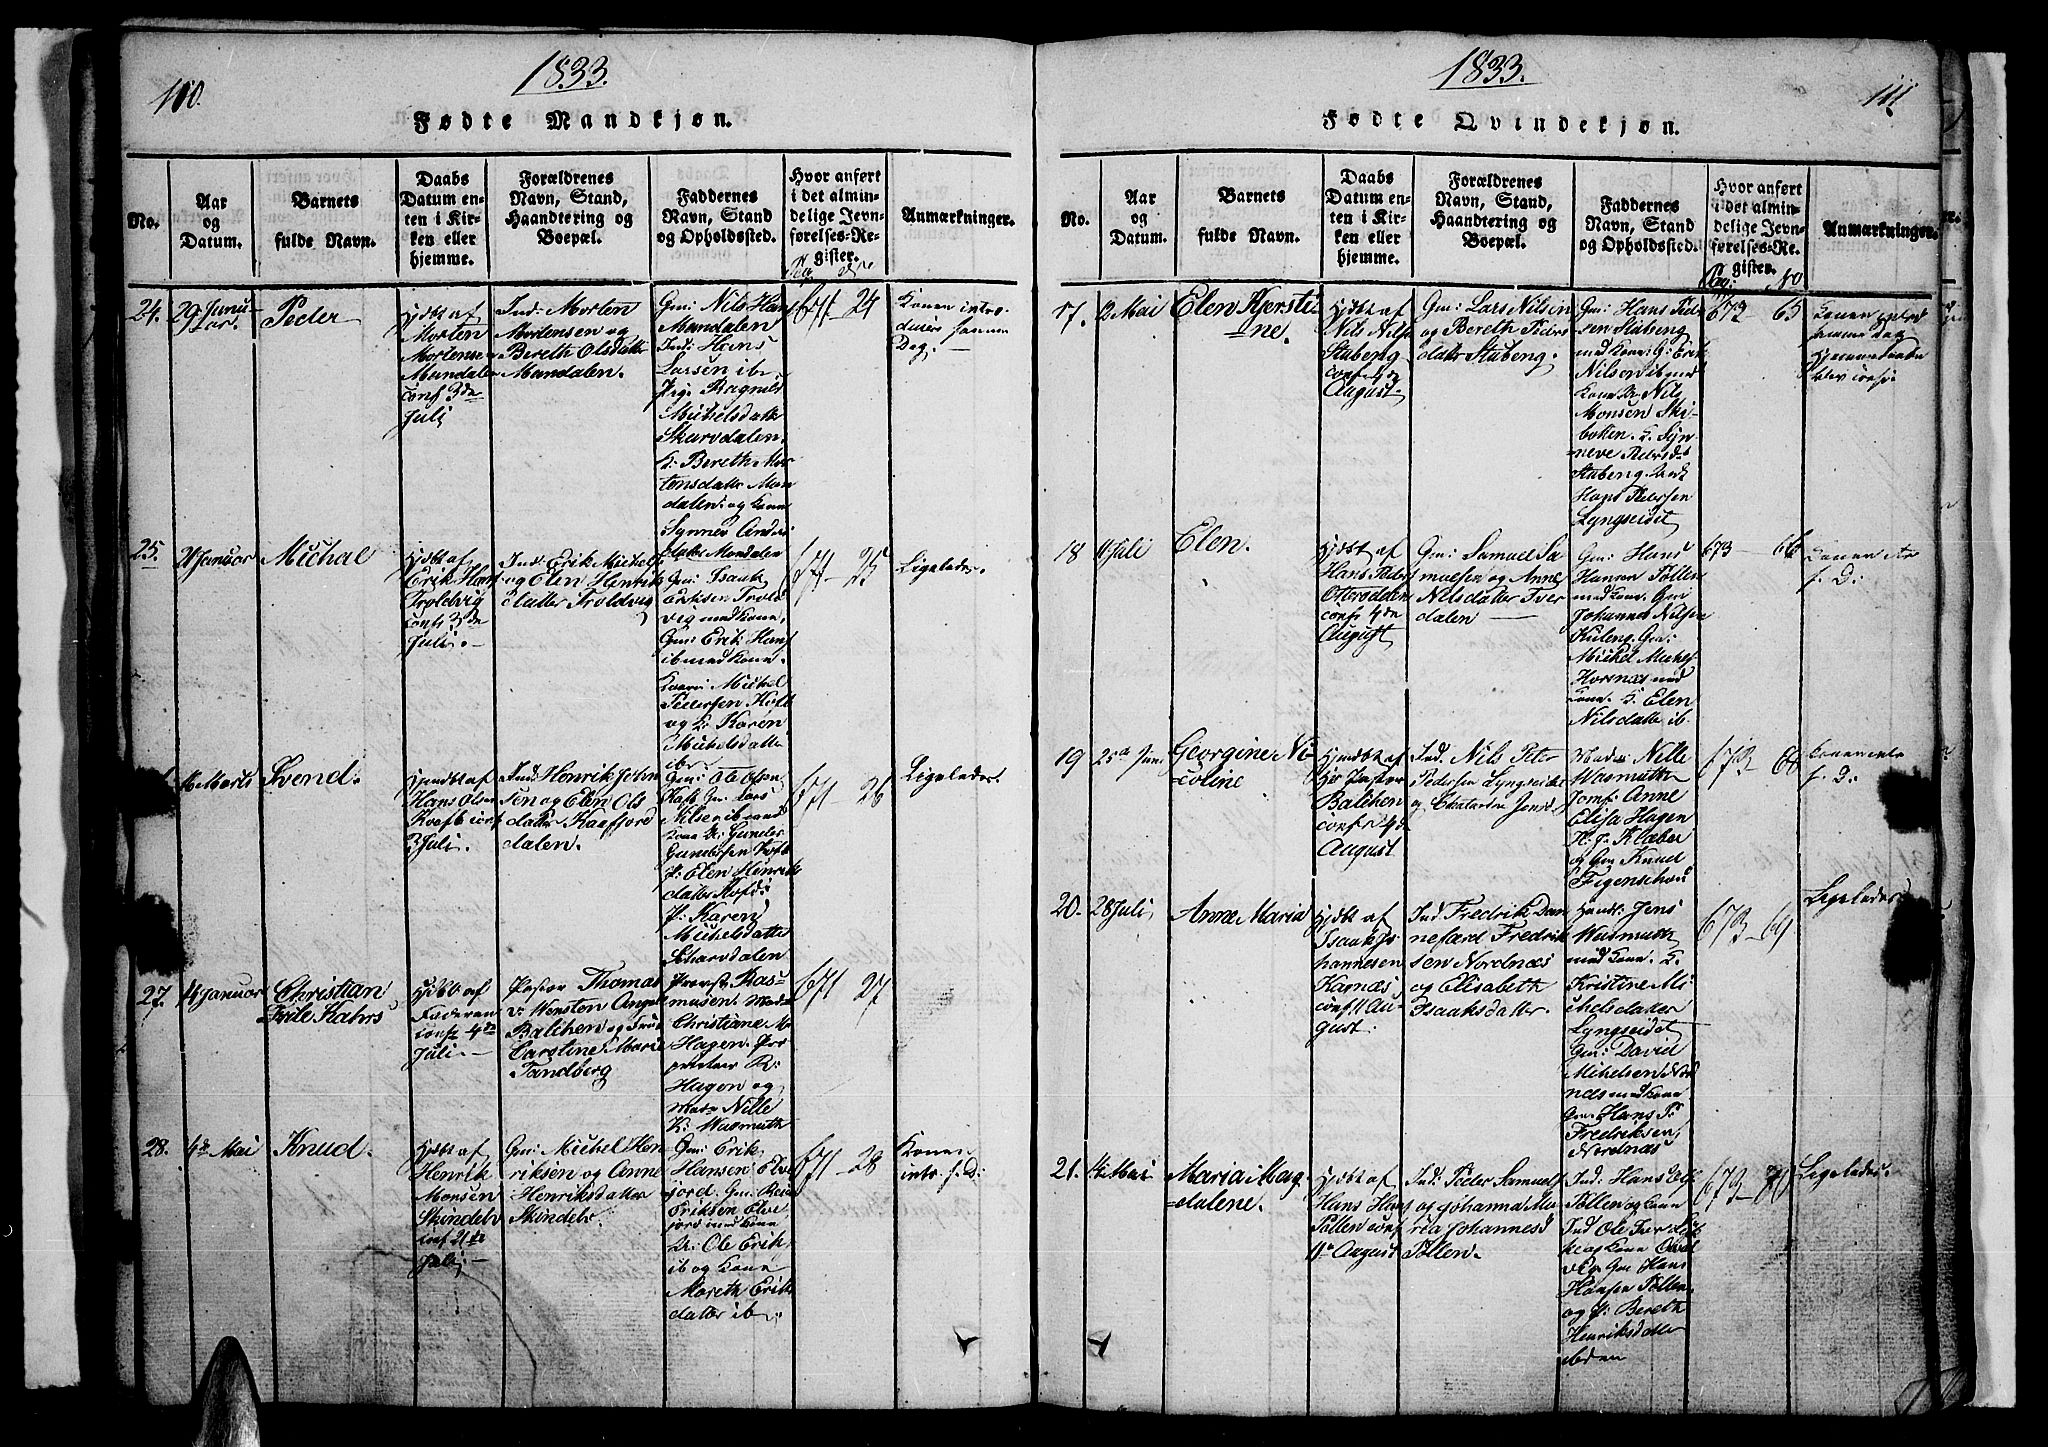 110.
1833.
Fødte Mandkjøn.
No.
Aar
og
Datum.
Barnets
fulde Navn.
Daabs
Datum en-
ten i Kir-
ken eller
hjemme.
Forældrenes
Navn, Stand,
Haandtering og
Boepæl.
Faddernes
Navn, Stand
og Opholdssted.
Hvor anført
i det almin-
delige Jevn-
førelses-Re-
gister.
Anmærkninger.
24.
29 Janu-
ar.
Peder
Hjdbt af
Morten
Mortensen
Mandalen
conf 3de
Juli
Ind: Morten
Mortensen og
Bereth Olsdatter
Mandalen.
Gm: Nils Han
Mandalen
Ind: Hans
Larsen ib.
Pig: Ragnild
Michelsdatter
Skarvdalen.
P: Bereth Mor
tensdatter Man
dalen og Kone
Synnev Anders
datter Mandalen
671 - 24
Konen intro-
duceres samme
Dag.
25.
21 Januar
Michal
Hjdbt af
Erik Hans
Troldvig
conf 3de
Juli.
Ind: Erik Michels
og Elen Henriks
datter Troldvig
Gm: Isaak
Eriksen Trold
vig med Kone.
Gm: Erik Hans
ib med Kone.
Michel
Pedersen
og P: Karen
Michelsdatter
ib.
671 - 25
Ligeledes.
Marts
Svend.
Hjemdbt af
Hans Olsen
conf
3 Juli.
Ind: Henrik John
sen og Elen Ols
datter Kaafjord
dalen.
Gm: Ole Olsen
Gm: Lars
Nilsen ib med
Kone
P: Elen Henriks
datter
P: Karen
Michelsdatter
Skarvdalen
671 - 26
Ligeledes.
27.
14 Januar
Christian
Friile Kahrs
Hjdbt af
Faderen
conf 4de
Juli
Pastor Thomas
v: Westen Angel
Balchen og Frue
Carstine Marie
Tandberg
Provst Ras-
musen. Mad.
Christiane M.
Hagen. Pro
prietær R:
Hagen og
Mad. Nille
K: Wasmuth
671 - 27
28.
4de Mai
Knud.
Hjdbt af
Henrik
Monsen
Skindelv
conf 21de
Juli
Gm: Michel Hen
riksen og Anne
Henriksdatter
Skindelv.
Gm: Erik
Hansen Elve
jord. Gm:
Eriksen Elve
jord med Kone
Ole Erik.
ib og Kone
Mareth Eriks
datter ib.
671 - 28
Konen
intr. s. D:
1833.
111
Fødte Qvindekjøn.
No.
Aar
og
Datum.
Barnets
fulde Navn.
Daabs
Datum en-
ten i Kir-
ken eller
hjemme.
Forældrenes
Navn, Stand,
Haandtering og
Boepæl.
Faddernes
Navn, Stand
og Opholdssted.
Hvor anført
i det almin-
delige Jevn-
førelses-Re-
gister.
Pag: No
Anmærkninger.
17.
12 Mai
Elen Kjersti-
ne.
Hjdbt af
Nils Nils
Stubeng
conf 4de
August
Gm: Lars Nilsen
og Bereth Peders
datter Stubeng.
Gm: Hans Peder
sen Stubeng
med Kone. G: Erik
Nilsen ib med
Kone Nils
Monsen Ski-
botten. P. Syn-
neve Pedersd
Stubeng.
Hans Pedersen
Lyngseidet
672 - 65
Konen introd
samme Dag
18
11 Juli
Elen.
Hjdbt af
Hans Peders
Oteraalen
conf 4de
August
Gm: Samuel Sa
muelsen og Anne
Nilsdatter Tver
dalen
Gm: Hans
Hansen Pollen
med Kone. Gm
Johannes Nilsen
Kileng. Gm:
Michel Michels
Horsnæs med
Kone. P. Elen
Nilsdatter ib.
673 - 66
Konen intr
s. D:
19
25de Juni
Georgine Ni
coline
Hjemdbt af
Hr Pastor
Balchen
conf 4de
August
Ind: Nils Peter
Pedersen Lyngseidet
og Chatarine Jensd
Mad: Nille
Wasmuth
Jomf: Anne
Elisa Hagen
H. J. Klæber
og Gm Knud
Figenschou
673 - 68
Konen intr
s. D:
20.
28 Juli
Anne Maria
Hjdbt af
Isaak Jo
hannesen
Karnæs
conf 11 Au-
gust.
Ind: Fredrik Dan
nefærd Fredrik
sen Nordnæs
og Elisabeth
Isaaksdatter.
Handl: Jens
Wasmuth
med Kone. P.
Kristine Mi
chelsdatter
Lyngseidet
Gm: David
Michelsen Nord
næs med Kone
Gm: Hans P.
Fredriksen
Nordnæs
673 - 69
Ligeledes.
21.
14 Mai
Maria Mag
dalene.
Hjdbt af
Hans Hans
Pollen conf
11te August
Ind: Peder Samuels
og Johanna Ma
ria Johannesd
Pollen.
Ind: Hans
Pollen og Kone
Ind Ole Iver
og Kone
Gm: Hans
Hansen Pollen
og P: Bereth
Henriksdatter
ibiden
673 - 70
Ligeledes.